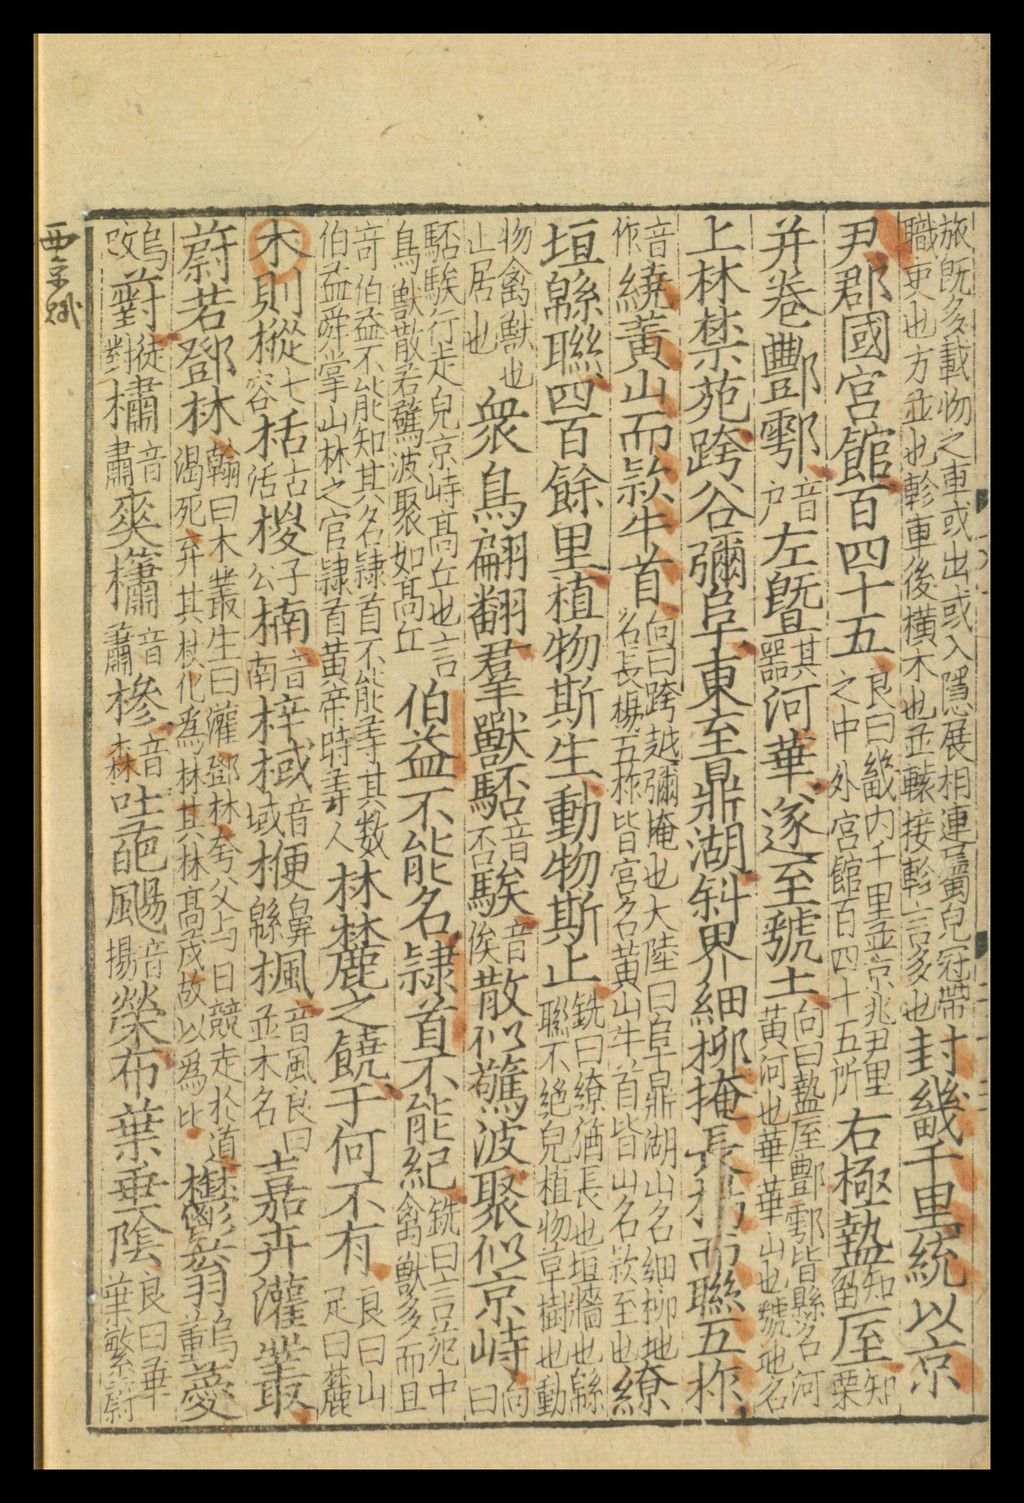 旅既多載物之車或出或入隱展相連冨皃冠帶職吏也方並也軫車後橫木也並轅接軫言多也封畿千里統以京
尹郡國宮館百四十五良曰畿内千里並京兆尹里之中外宮館百四十五所右極盩知留厔知栗
并卷酆鄠音戶左曁其器河華遂至虢土向曰盩厔酆鄠皆縣名河黃河也華華山也虢地名
上林禁苑跨谷彌阜東至鼎湖斜界細柳掩長楊而聯五柞
音作繞黃山而欵牛首向曰跨越彌掩也大陸曰阜鼎湖山名細柳地名長楊五柞皆宮名黃山牛首皆山名欵至也繚
垣緜聯四百餘里植物斯生動物斯止銑曰繚猶長也垣牆也緜聯不絕皃植物草樹也動
物禽獸也山居也衆鳥翩翻羣獸駓音否騃音俟散似驚波聚似京峙向曰
駓騃行走皃京峙高丘也言鳥獸散若驚波聚如高丘伯益不能名隸首不能紀銑曰言苑中禽獸多而且
奇伯益不能知其名隸首不能筭其數伯益舜掌山林之官隸首黃帝時筭人林麓之饒于何不有良曰山足曰麓
木則樅七容栝古活椶子公楠音南梓棫音域楩鼻緜楓音風良曰並木名嘉卉灌叢
蔚若鄧林翰曰木叢生曰灌鄧林夸父与日競走於道渴死弃其杖化為林其林高茂故以為比欝蓊烏董薆
烏改薱徒對橚音肅爽櫹音蕭槮音森吐葩颺音揚榮布葉垂陰良曰華葉繁蔚
西京賦